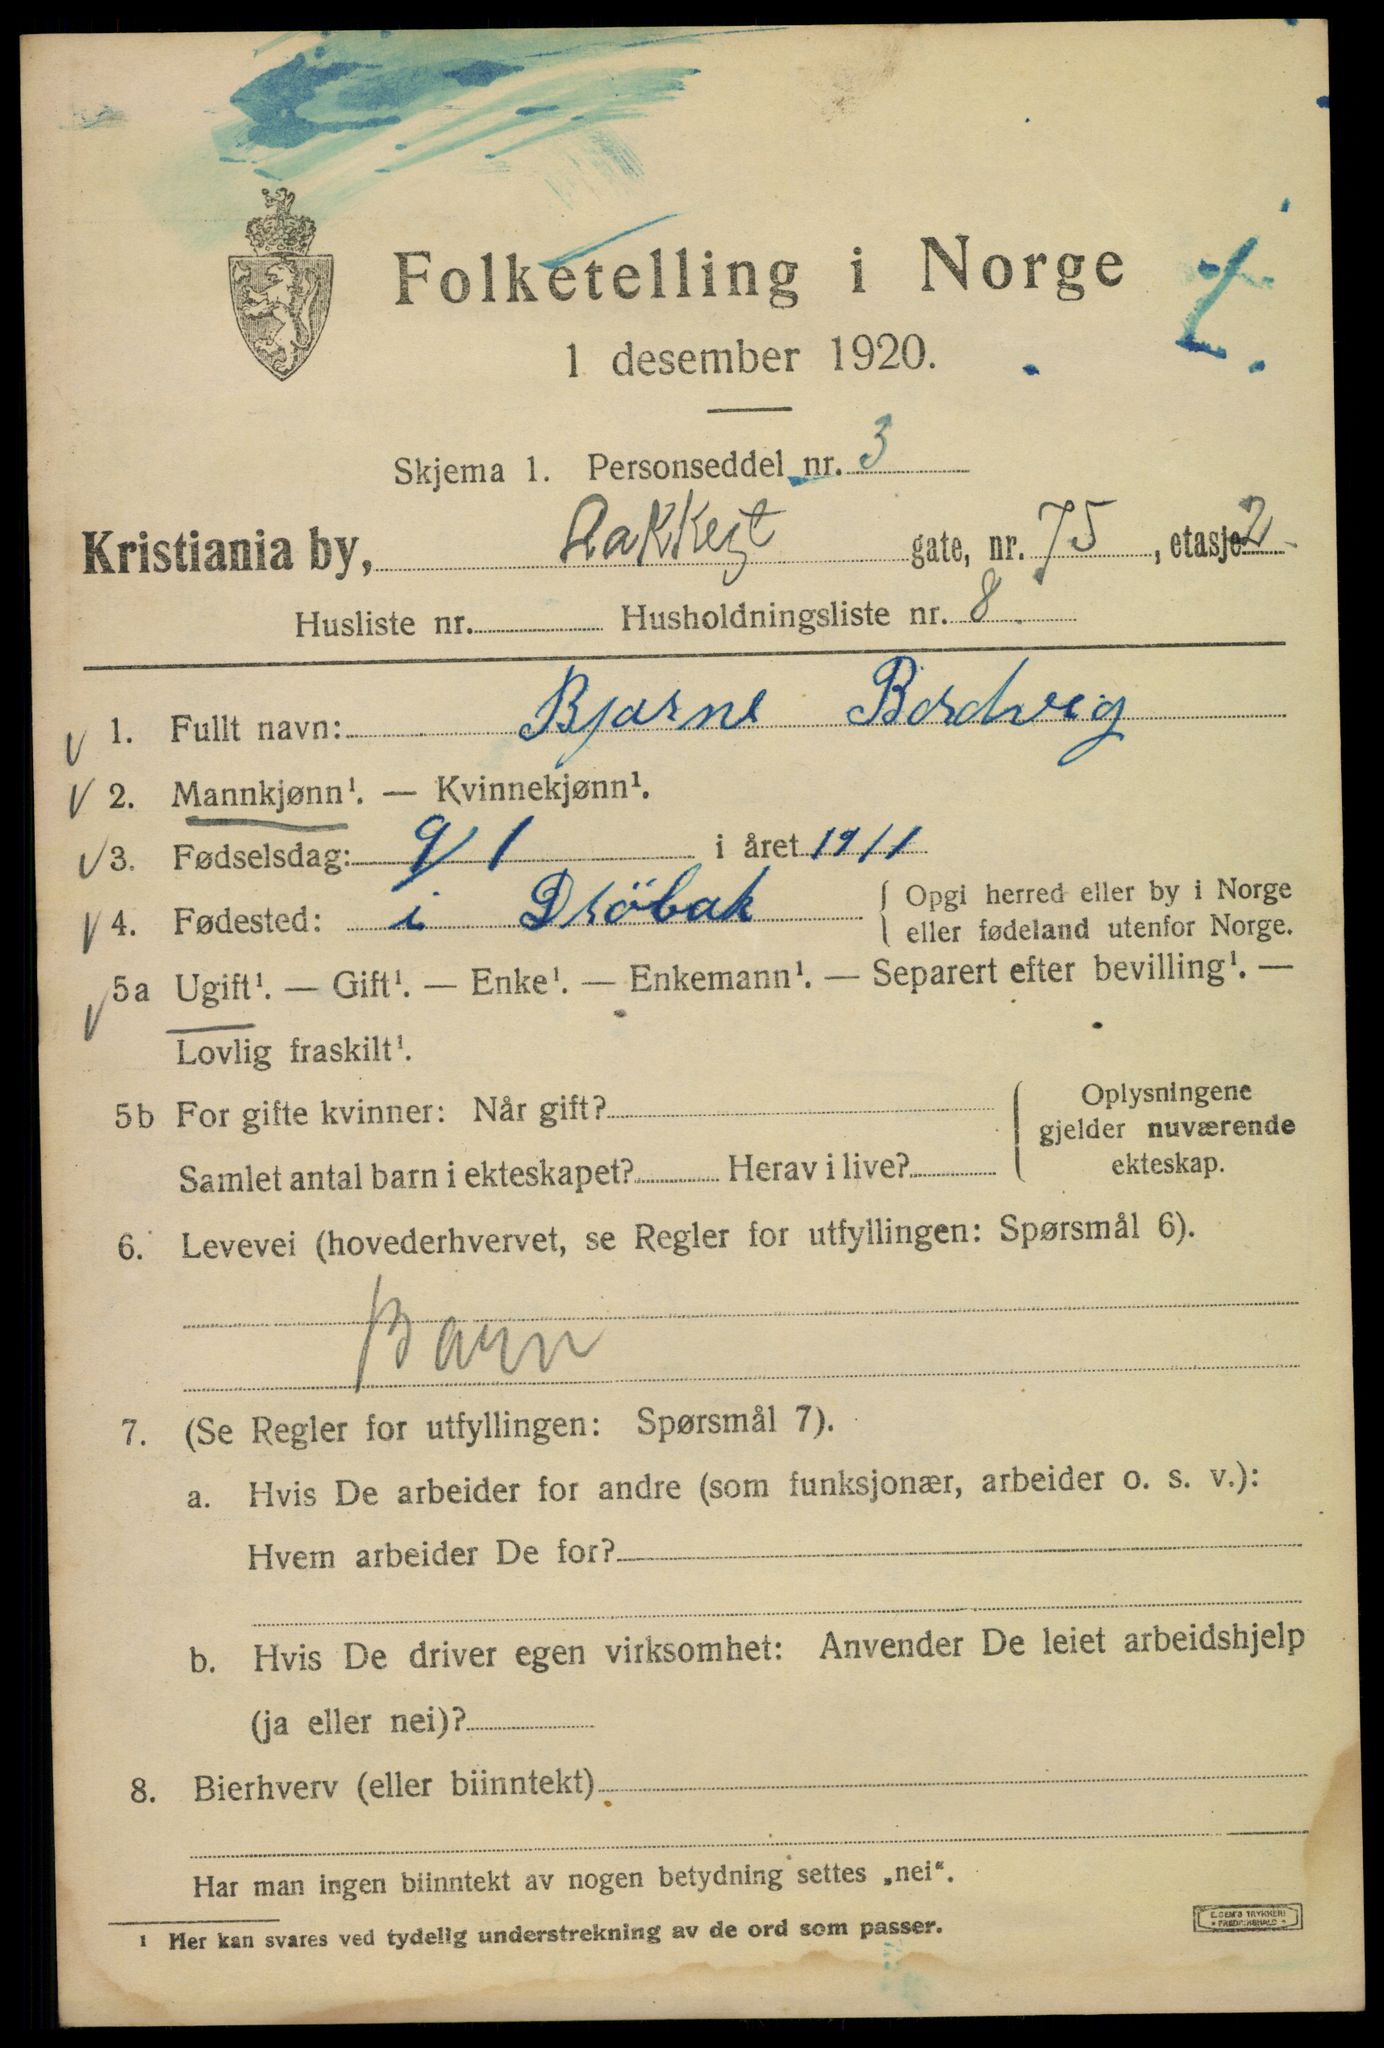 Folketelling i Norge
1 desember 1920.
Skjema 1. Personseddel nr. 3
Kristiania by, Bakkegt gate, nr. 75, etasje 2
Husliste nr. Husholdningsliste nr. 8.
1. Fullt navn: Bjarne Bordvig
2. Mannkjønn¹. — Kvinnekjønn¹.
3. Fødselsdag: 9/1 i året 1911
4. Fødested: i Dröbak { Opgi herred eller by i Norge
eller fødeland utenfor Norge.
5a Ugift¹. — Gift¹. — Enke¹. — Enkemann¹. — Separert efter bevilling¹. —
Lovlig fraskilt¹.
5b For gifte kvinner: Når gift?
Oplysningene
gjelder nuværende
ekteskap.
Samlet antal barn i ekteskapet? Herav i live?
6. Levevei (hovederhvervet, se Regler for utfyllingen: Spørsmål 6).
Barn
7. (Se Regler for utfyllingen: Spørsmål 7).
a. Hvis De arbeider for andre (som funksjonær, arbeider o. s. v.):
Hvem arbeider De for?
b. Hvis De driver egen virksomhet: Anvender De leiet arbeidshjelp
(ja eller nei)?
8. Bierhverv (eller biinntekt)
Har man ingen biinntekt av nogen betydning settes „nei“.
¹ Her kan svares ved tydelig understrekning av de ord som passer.
E. SEM'S TRYKKERI
FREDRIKSHALD